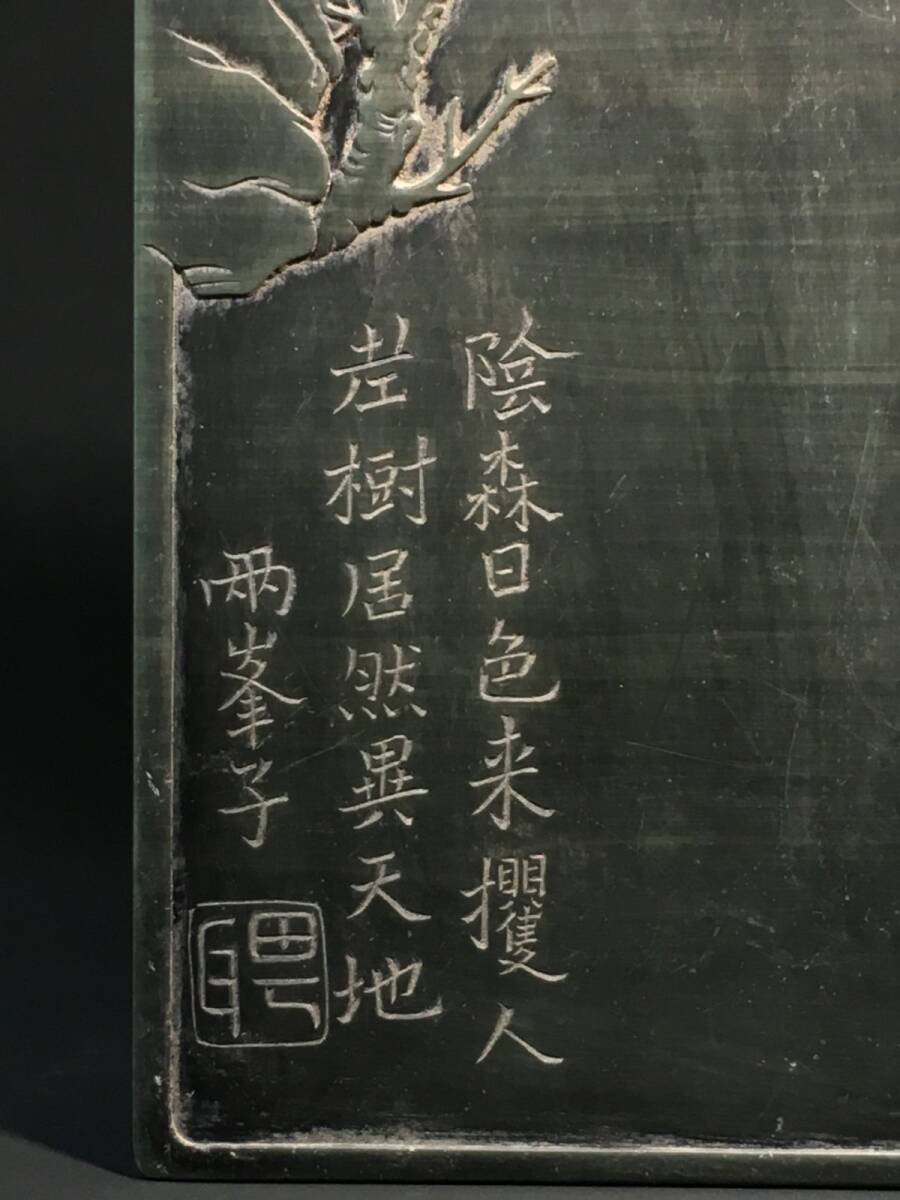 陰森日色来攫人
老樹居然異天地
兩峯子
聘